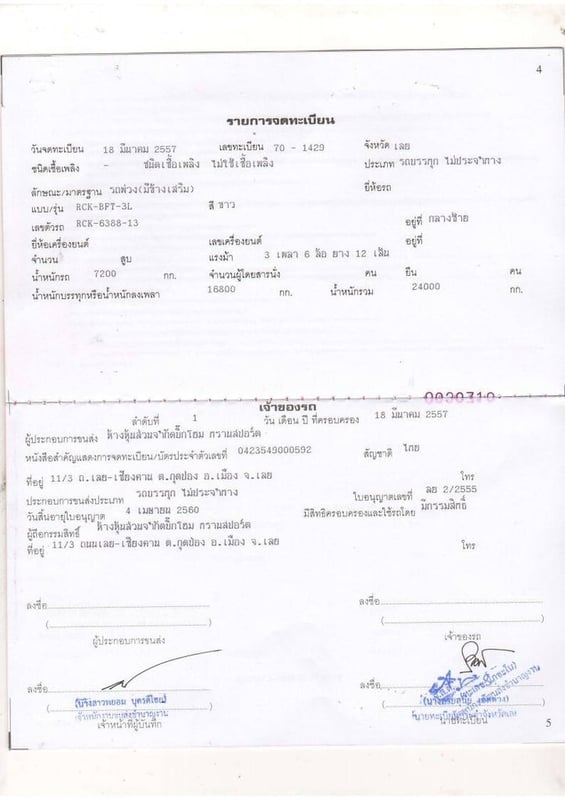 4
รายการจดทะเบียน
วันจดทะเบียน 18 มีนาคม 2557 เลขทะเบียน 70 - 1429 จังหวัด เลย
ชนิดเชื้อเพลิง - ชนิดเชื้อเพลิง ไม่ใช้เชื้อเพลิง ประเภท รถบรรทุก ไม่ประจำทาง
ลักษณะ/มาตรฐาน รถพ่วง(มีข้างเสริม) ยี่ห้อรถ
แบบ/รุ่น RCK-BFT-3L สี ขาว
เลขตัวรถ RCK-6388-13 อยู่ที่ กลางซ้าย
ยี่ห้อเครื่องยนต์ เลขเครื่องยนต์ อยู่ที่
จำนวน สูบ แรงม้า 3 เพลา 6 ล้อ ยาง 12 เส้น
น้ำหนักรถ 7200 กก. จำนวนผู้โดยสารนั่ง คน ยืน คน
น้ำหนักบรรทุกหรือน้ำหนักลงเพลา 16800 กก. น้ำหนักรวม 24000 กก.
เจ้าของรถ
ลำดับที่ 1 วัน เดือน ปี ที่ครอบครอง 18 มีนาคม 2557
ผู้ประกอบการขนส่ง ห้างหุ้นส่วนจำกัดบิ๊กโฮม ทรานสปอร์ต
หนังสือสำคัญแสดงการจดทะเบียน/บัตรประจำตัวเลขที่ 0423549000592 สัญชาติ ไทย
ที่อยู่ 11/3 ถ.เลย-เชียงคาน ต.กุดป่อง อ.เมือง จ.เลย โทร
ประกอบการขนส่งประเภท รถบรรทุก ไม่ประจำทาง ใบอนุญาตเลขที่ ลย 2/2555
วันสิ้นอายุใบอนุญาต 4 เมษายน 2560 มีสิทธิครอบครองและใช้รถโดย มีกรรมสิทธิ์
ผู้ถือกรรมสิทธิ์ ห้างหุ้นส่วนจำกัดบิ๊กโฮม ทรานสปอร์ต
ที่อยู่ 11/3 ถนนเลย-เชียงคาน ต.กุดป่อง อ.เมือง จ.เลย โทร
ลงชื่อ ลงชื่อ
( ) ( )
ผู้ประกอบการขนส่ง เจ้าของรถ
ลงชื่อ ลงชื่อ
เจ้าพนักงานขนส่งชำนาญงาน
เจ้าหน้าที่ผู้บันทึก นายทะเบียน
5